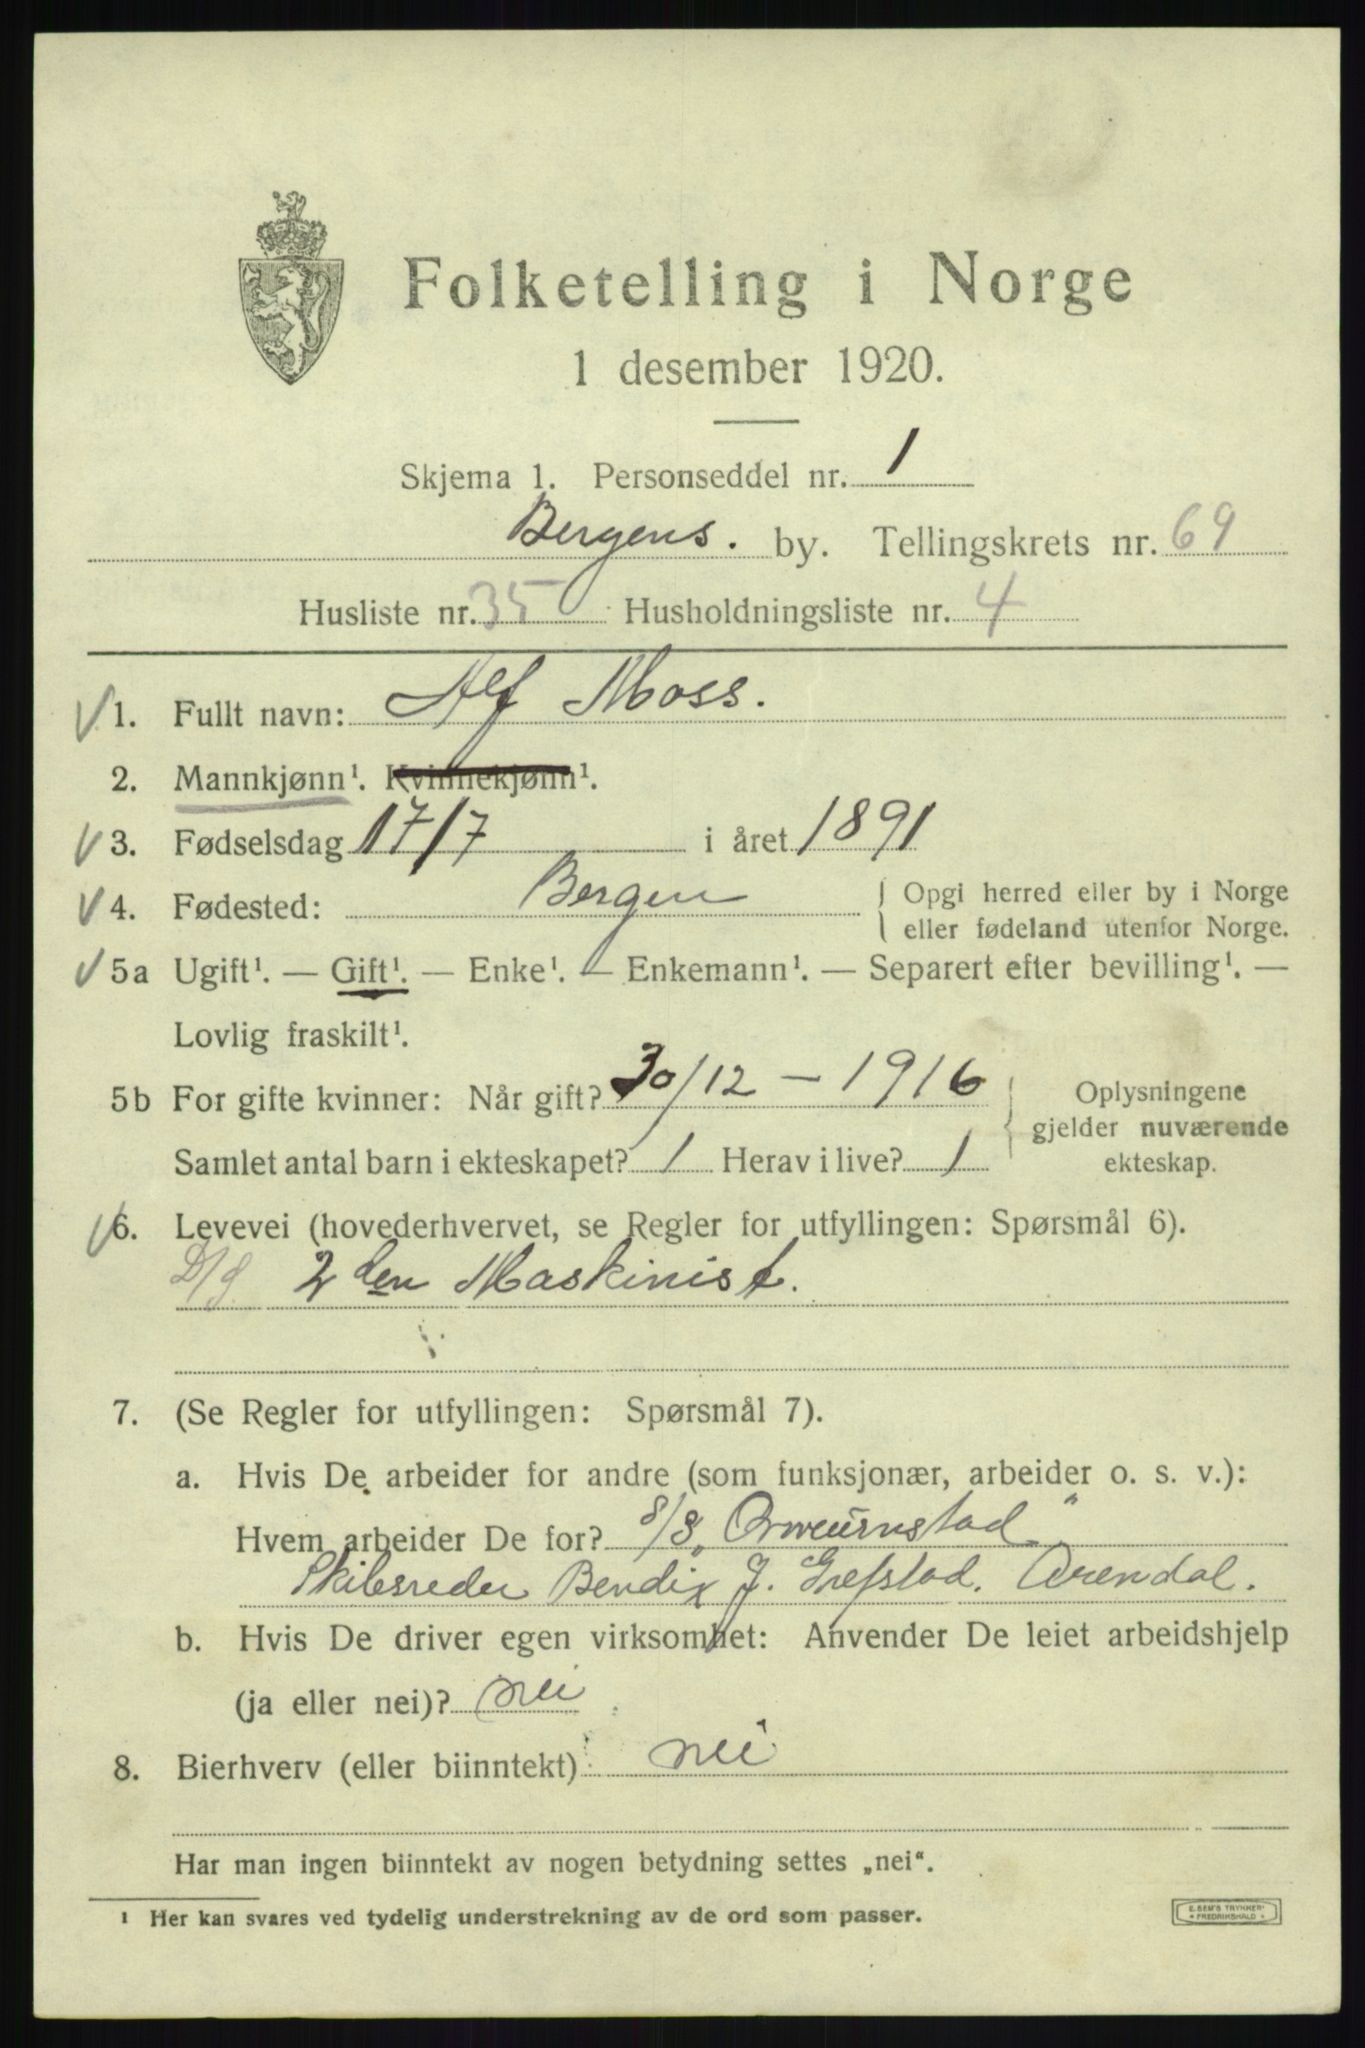 Folketelling i Norge
1 desember 1920.
Skjema 1. Personseddel nr. 1
Bergens. by. Tellingskrets nr. 69
Husliste nr. 35 Husholdningsliste nr. 4
1. Fullt navn: Alf Moss.
2. Mannkjønn¹. Kvinnekjønn¹.
3. Fødselsdag 17/7 i året 1891
4. Fødested: Bergen { Opgi herred eller by i Norge
eller fødeland utenfor Norge.
5a Ugift¹. — Gift¹. — Enke¹. — Enkemann¹. — Separert efter bevilling¹. —
Lovlig fraskilt¹.
5b For gifte kvinner: Når gift? 30/12 – 1916
Samlet antal barn i ekteskapet? 1 Herav i live? 1
Oplysningene
gjelder nuværende
ekteskap.
6. Levevei (hovederhvervet, se Regler for utfyllingen: Spørsmål 6).
D/S 2den Maskinist.
7. (Se Regler for utfyllingen: Spørsmål 7).
a. Hvis De arbeider for andre (som funksjonær, arbeider o. s. v.):
Hvem arbeider De for? S/S
Skibsreder Bendix J. Grefstad. Arendal.
b. Hvis De driver egen virksomhet: Anvender De leiet arbeidshjelp
(ja eller nei)? nei
8. Bierhverv (eller biinntekt) nei
Har man ingen biinntekt av nogen betydning settes „nei“.
¹ Her kan svares ved tydelig understrekning av de ord som passer.
E. SEM'S TRYKKERI
FREDRIKSHALD